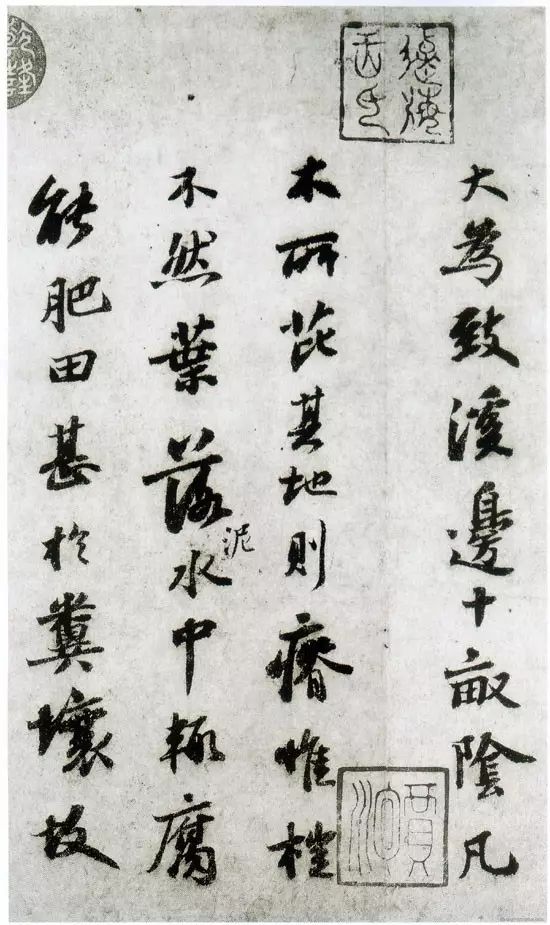 大為致溪邊十畝陰凡
木所芘其地則瘠惟榿
不然葉落泥水中輒腐
能肥田甚於糞壤故